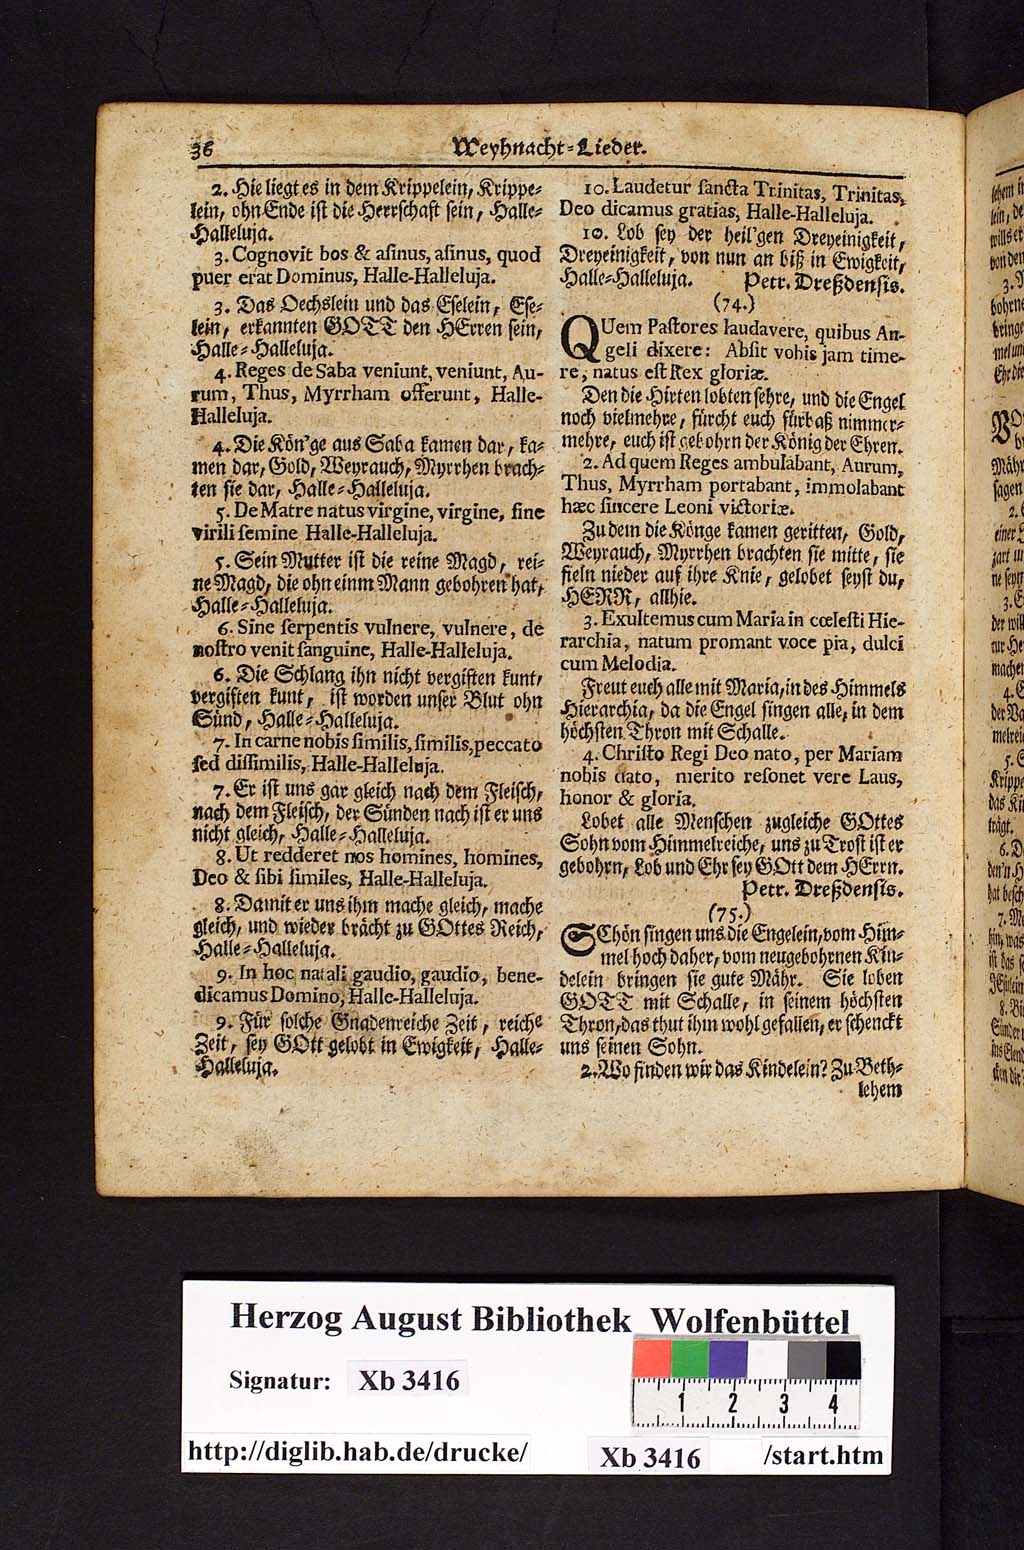 36 Weyhnacht-Lieder.
2. Hie liegt es in dem Krippelein, Krippe-
lein, ohn Ende ist die Herrschaft sein, Halle-
Halleluja.
3. Cognovit bos & aſinus, aſinus, quod
puer erat Dominus, Halle-Halleluja.
3. Das Oechslein und das Eselein, Ese-
lein, erkannten GOTT den HErren sein,
Halle-Halleluja.
4. Reges de Saba veniunt, veniunt, Au-
rum, Thus, Myrrham offerunt, Halle-
Halleluja.
4. Die Kön'ge aus Saba kamen dar, ka-
men dar, Gold, Weyrauch, Myrrhen brach-
ten sie dar, Halle-Halleluja.
5. De Matre natus virgine, virgine, ſine
virili ſemine Halle-Halleluja.
5. Sein Mutter ist die reine Magd, rei-
ne Magd, die ohn einm Mann gebohren hat,
Halle-Halleluja.
6. Sine ſerpentis vulnere, vulnere, de
noſtro venit ſanguine, Halle-Halleluja.
6. Die Schlang ihn nicht vergiften kunt,
vergiften kunt, ist worden unser Blut ohn
Sünd, Halle-Halleluja.
7. In carne nobis ſimilis, ſimilis, peccato
ſed diſſimilis, Halle-Halleluja.
7. Er ist uns gar gleich nach dem Fleisch,
nach dem Fleisch, der Sünden nach ist er uns
nicht gleich, Halle-Halleluja.
8. Ut redderet nos homines, homines,
Deo & ſibi ſimiles, Halle-Halleluja.
8. Damit er uns ihm mache gleich, mache
gleich, und wieder brächt zu GOttes Reich,
Halle-Halleluja.
9. In hoc natali gaudio, gaudio, bene-
dicamus Domino, Halle-Halleluja.
9. Für solche Gnadenreiche Zeit, reiche
Zeit, sey GOtt gelobt in Ewigkeit, Halle-
Halleluja.
10. Laudetur ſancta Trinitas, Trinitas,
Deo dicamus gratias, Halle-Halleluja.
10. Lob sey der heil'gen Dreyeinigkeit,
Dreyeinigkeit, von nun an biß in Ewigkeit,
Halle-Halleluja. Petr. Dreßdensis.
(74.)
QUem Paſtores laudavere, quibus An-
geli dixere: Abſit vobis jam time-
re, natus eſt Rex gloriæ.
Den die Hirten lobten sehre, und die Engel
noch vielmehre, fürcht euch fürbaß nimmer-
mehre, euch ist gebohrn der König der Ehren.
2. Ad quem Reges ambulabant, Aurum,
Thus, Myrrham portabant, immolabant
hæc ſincere Leoni victoriæ.
Zu dem die Könge kamen geritten, Gold,
Weyrauch, Myrrhen brachten sie mitte, sie
fieln nieder auf ihre Knie, gelobet seyst du,
HERR, allhie.
3. Exultemus cum Maria in cœleſti Hie-
rarchia, natum promant voce pia, dulci
cum Melodia.
Freut euch alle mit Maria, in des Himmels
Hierarchia, da die Engel singen alle, in dem
höchsten Thron mit Schalle.
4. Chriſto Regi Deo nato, per Mariam
nobis dato, merito reſonet vere Laus,
honor & gloria.
Lobet alle Menschen zugleiche GOttes
Sohn vom Himmelreiche, uns zu Trost ist er
gebohrn, Lob und Ehr sey GOtt dem HErrn.
Petr. Dreßdensis.
(75.)
SChön singen uns die Engelein, vom Him-
mel hoch daher, vom neugebohrnen Kin-
delein bringen sie gute Mähr. Sie loben
GOTT mit Schalle, in seinem höchsten
Thron, das thut ihm wohl gefallen, er schenckt
uns seinen Sohn.
2. Wo finden wir das Kindelein? Zu Beth-
lehem
Herzog August Bibliothek Wolfenbüttel
Signatur: Xb 3416
1 2 3 4
http://diglib.hab.de/drucke/ Xb 3416 /start.htm